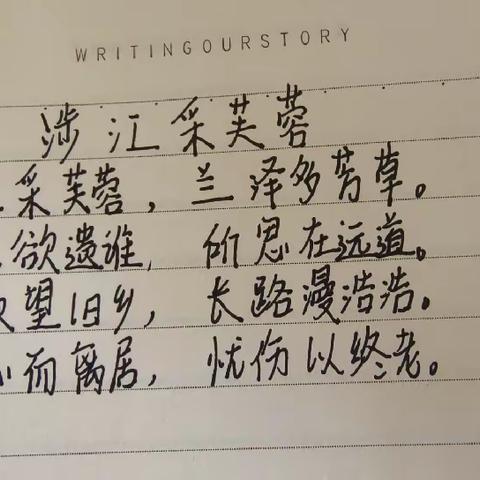 WRITINGOURSTORY
涉江采芙蓉
采芙蓉，兰泽多芳草。
欲遗谁，所思在远道。
望旧乡，长路漫浩浩。
而离居，忧伤以终老。